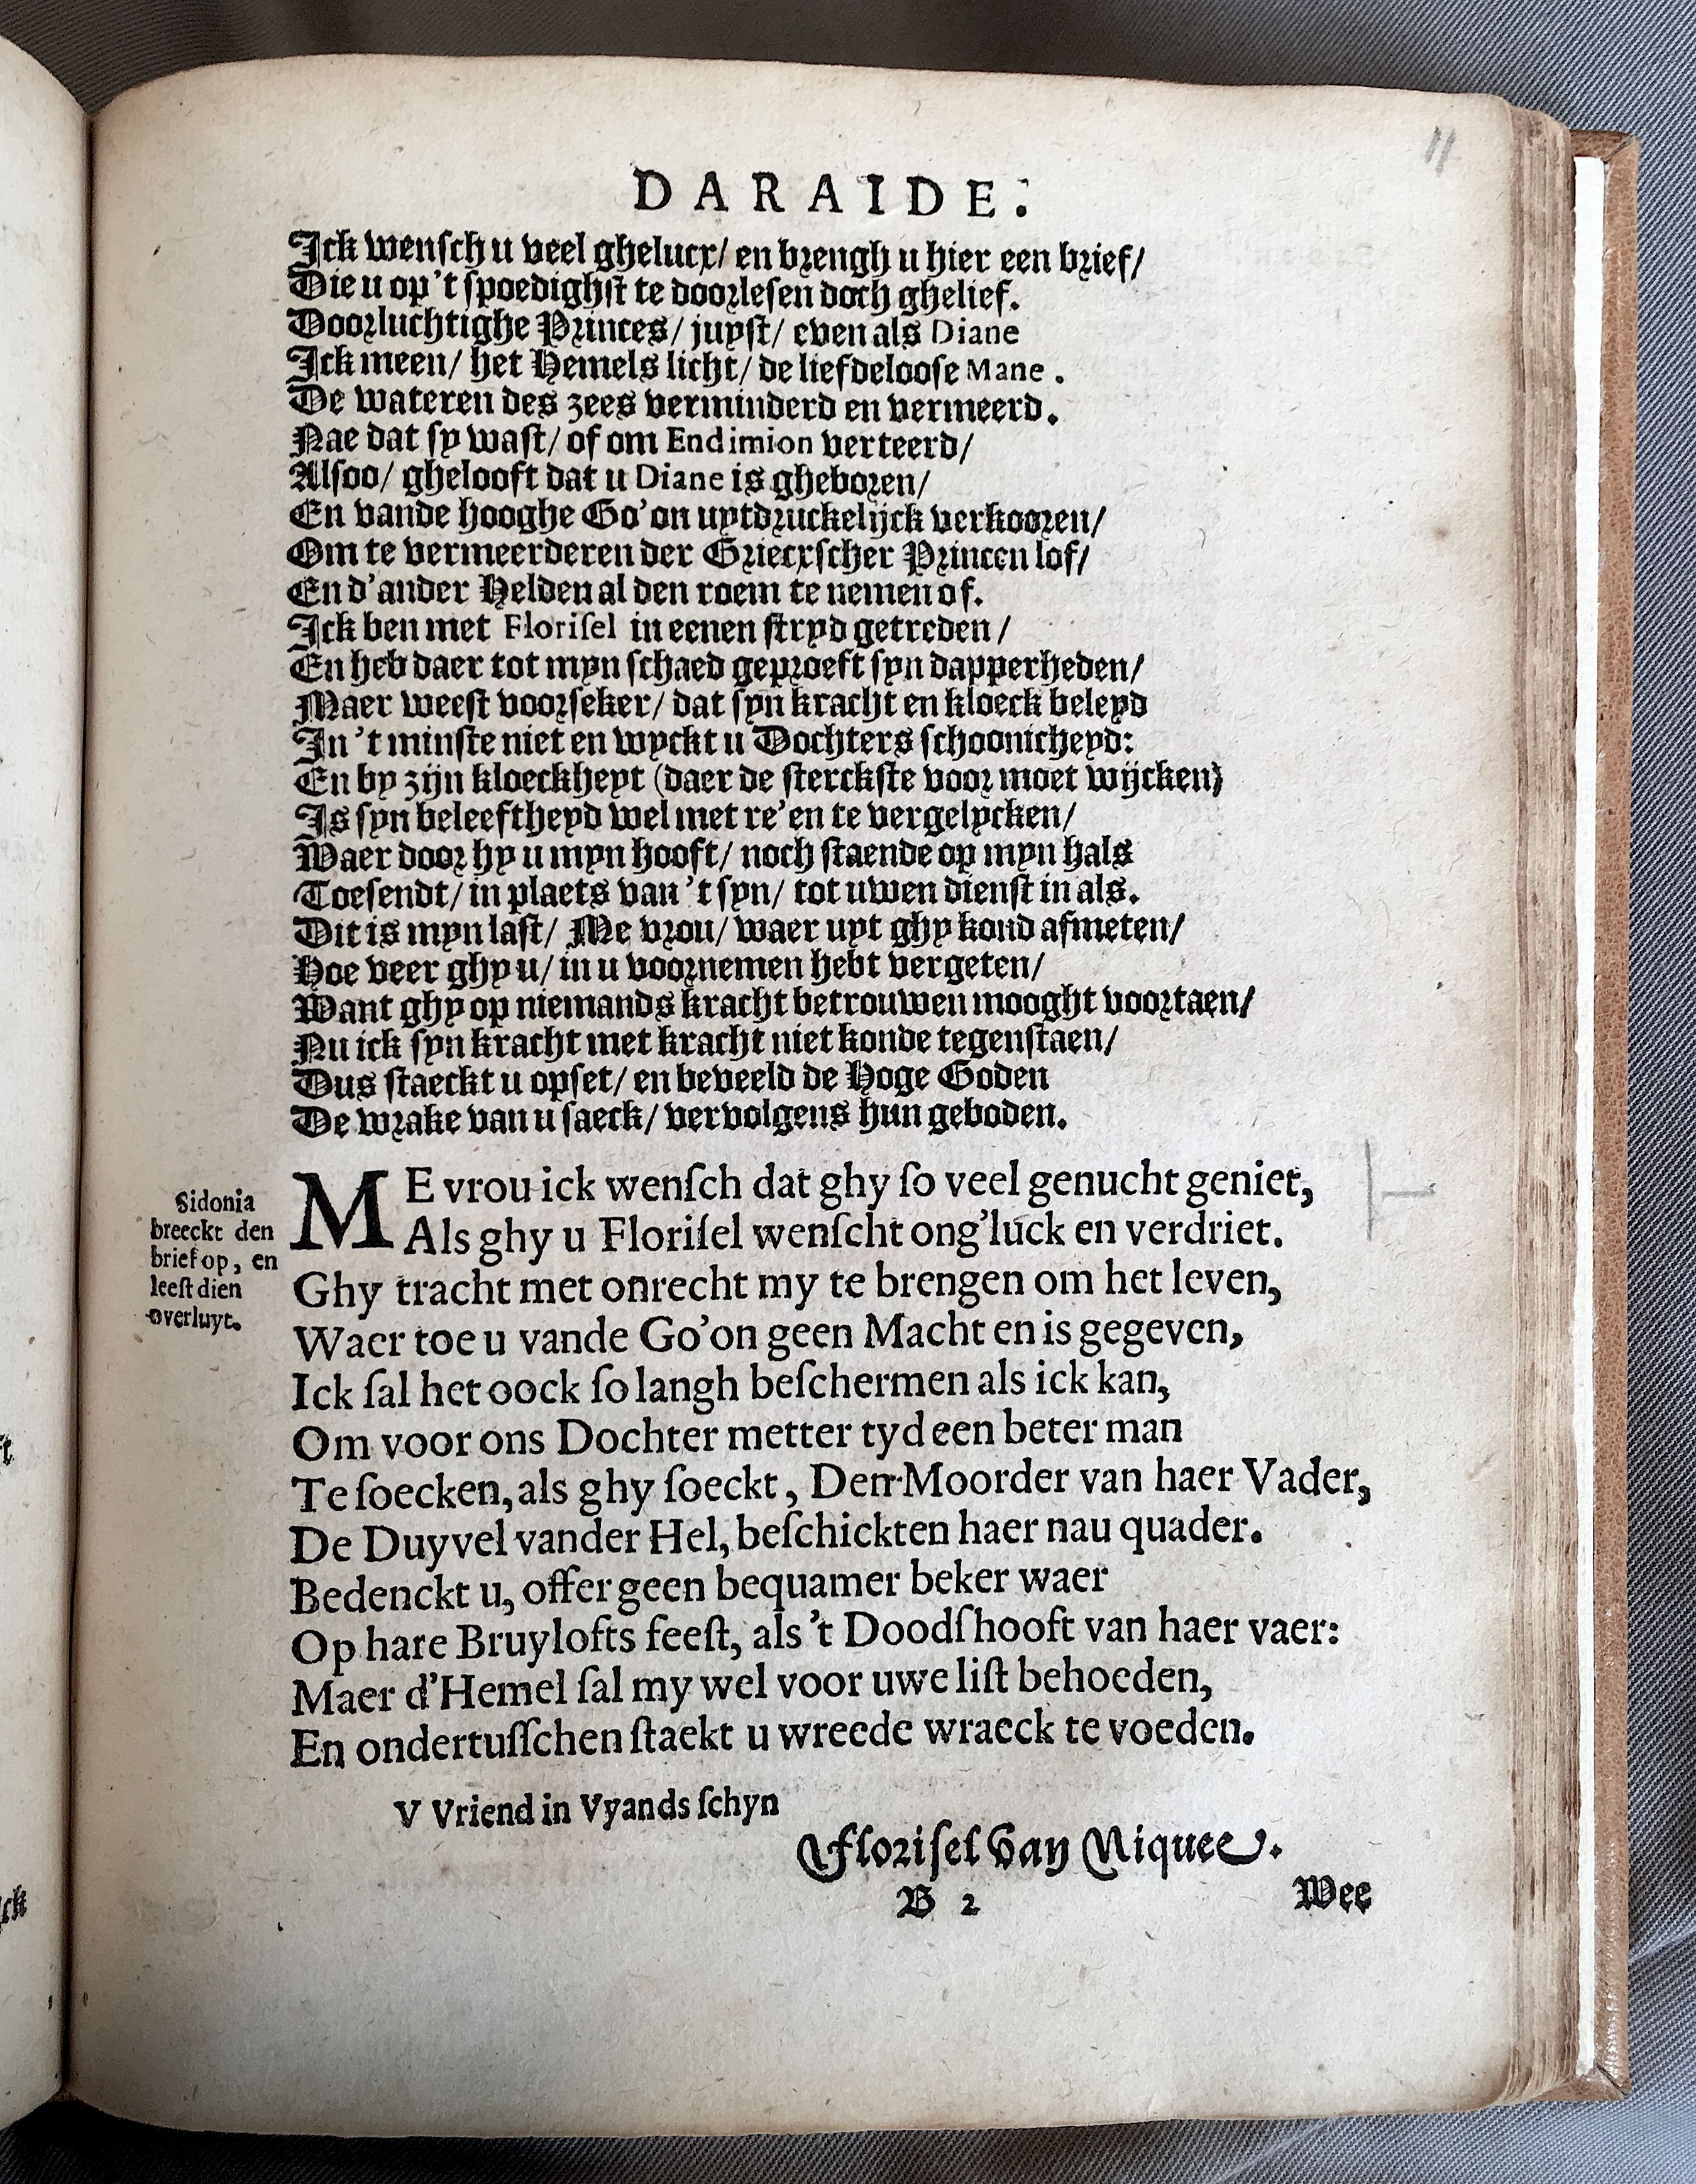 11
DARAIDE.
Ick wensch u veel ghelucx/ en brengh u hier een brief/
Die u op 't spoedighst te doorlesen doch ghelief.
Doorluchtighe Princes/ juyst/ even als Diane
Ick meen/ het Hemels licht/ de liefdeloose Mane.
De wateren des zees verminderd en vermeerd.
Nae dat sy wast/ of om Endimion verteerd/
Alsoo/ ghelooft dat u Diane is gheboren/
En vande hooghe Go'on uytdruckelijck verkooren/
Om te vermeerderen der Griecxscher Princen lof/
En d'ander Helden al den roem te nemen of.
Ick ben met Florisel in eenen stryd getreden/
En heb daer tot myn schaed geproeft syn dapperheden/
Maer weest voorseker/ dat syn kracht en kloeck beleyd
In 't minste niet en wyckt u Dochters schoonicheyd:
En by zijn kloeckheyt (daer de sterckste voor moet wijcken)
Is syn beleeftheyd wel met re'en te vergelycken/
Waer door hy u myn hooft/ noch staende op myn hals
Toesendt/ in plaets van 't syn/ tot uwen dienst in als.
Dit is myn last/ Me vrou/ waer uyt ghy kond afmeten/
Hoe veer ghy u/ in u voornemen hebt vergeten/
Want ghy op niemands kracht betrouwen mooght voortaen/
Nu ick syn kracht met kracht niet konde tegenstaen/
Dus staeckt u opset/ en beveeld de Hoge Goden
De wrake van u saeck/ vervolgens hun geboden.
Sidonia
breeckt den
brief op, en
leest dien
overluyt.
ME vrou ick wensch dat ghy so veel genucht geniet,
Als ghy u Florisel wenscht ong'luck en verdriet.
Ghy tracht met onrecht my te brengen om het leven,
Waer toe u vande Go'on geen Macht en is gegeven,
Ick sal het oock so langh beschermen als ick kan,
Om voor ons Dochter metter tyd een beter man
Te soecken, als ghy soeckt, Den Moorder van haer Vader,
De Duyvel vander Hel, beschickten haer nau quader.
Bedenckt u, offer geen bequamer beker waer
Op hare Bruylofts feest, als 't Doodshooft van haer vaer:
Maer d'Hemel sal my wel voor uwe list behoeden,
En ondertusschen staekt u wreede wraeck te voeden.
V Vriend in Vyands schyn
Florisel Van Niquee.
B 2
Wee